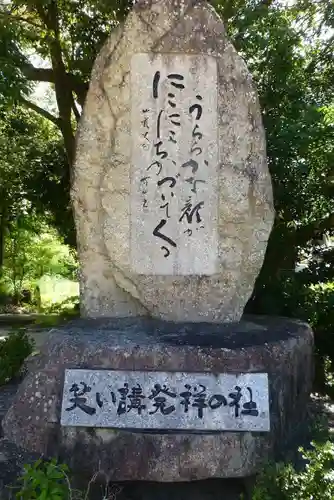 うららかな顔が
にこにこちかづいてく
笑い講発祥の社